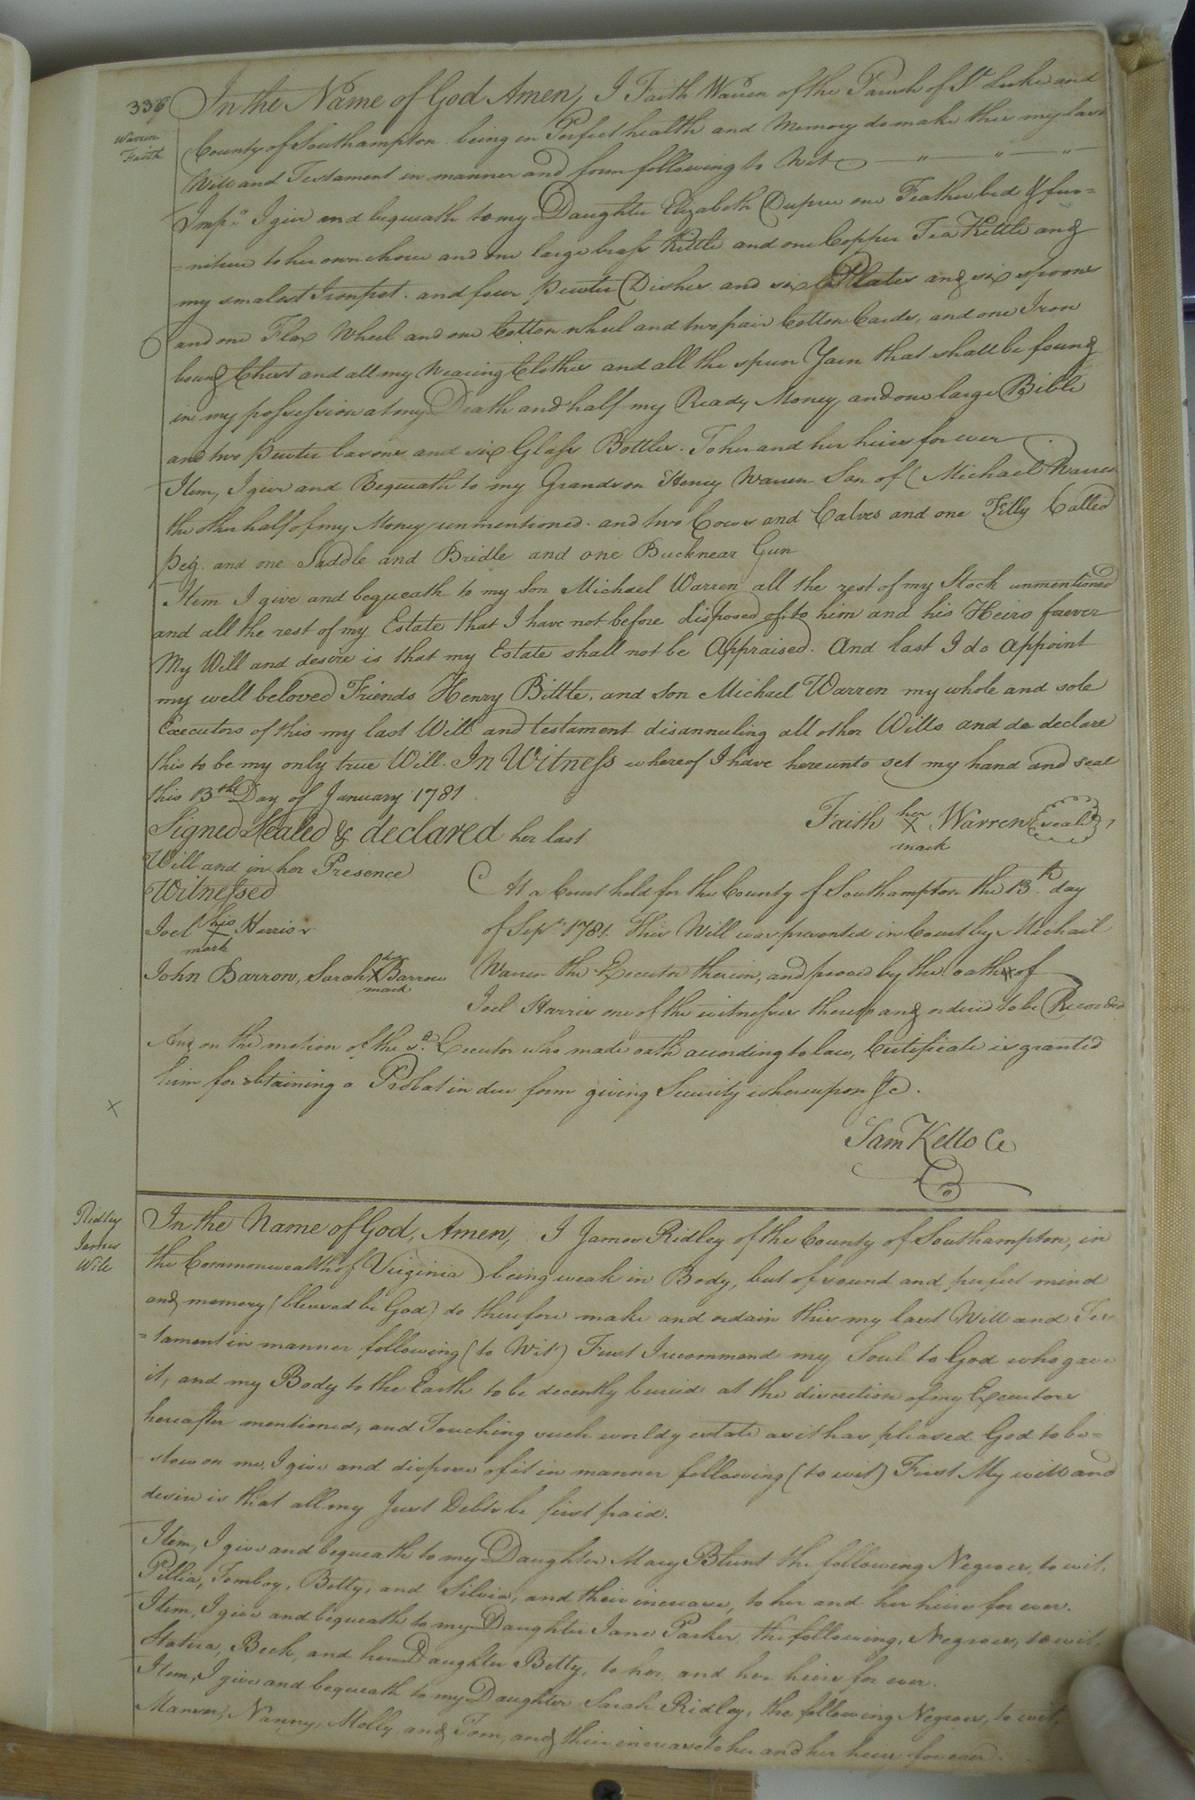 336
Warren
Faith
In the Name of God Amen, I Faith Warren of the Parish of St Luke and
County of Southampton being in Perfect health and Memory do make this my last
Will and Testament in manner and form following to Wit
Imps. I give and bequeath to my Daughter Elizabeth Dupree one Feather bed & fur=
=niture to her own choice and one large brass Kettle and one Copper Tea Kettle and
my smalest Ironpot. and four Pewter Dishes and six Plates and six spoons
and one Flax Wheel and one Cotton wheel and two pair Cotton Cards, and one Iron
bound Chest and all my Wearing Clothes and all the spun Yarn that shall be found
in my possession at my Death and half my Ready Money, and one large Bible
and two Pewter basons and six Glass Bottles. To her and her heirs for ever
Item, I give and Bequeath to my Grandson Henry Warren Son of Michael Warren
the other half of my Money unmentioned. and two Cows and Calves and one Filly Called
Peg. and one Saddle and Bridle and one Bucknear Gun
Item I give and bequeath to my Son Michael Warren all the rest of my Stock unmentioned
and all the rest of my Estate that I have not before disposed of. to him and his Heirs forever
My Will and desire is that my Estate shall not be Appraised. And last I do appoint
my well beloved Friends Henry Bittle, and son Michael Warren my whole and sole
Executors of this my last Will and testament disannuling all other Wills and do declare
this to be my only true Will. In Witness whereof I have hereunto set my hand and seal
this 13th Day of January 1781
Signed Sealed & declared her last
Faith her X mark Warren (seal)
Will and in her Presence
Witnessed
Joel his mark Harris
John Barrow, Sarah her X mark Barrow
At a Court held for the County of Southampton the 13th day
of Sepr. 1781. This Will was presented in Court by Michael
Warren the Executor therein, and proved by the oath of
Joel Harris one of the witnesses thereto and ordered to be Recorded
And on the motion of the sd. Executor who made oath according to law, Certificate is granted
him for obtaining a Probat in due form giving Security whereupon &c.
Sam Kello Ce
X
Ridley
James
Will
In the Name of God, Amen, I James Ridley of the County of Southampton, in
the Commonwealth of Virginia being weak in Body, but of sound and perfect mind
and memory (blessed be God) do therefore make and ordain this my last Will and Tes
=tament in manner following (to Wit) First I recommend my Soul to God who gave
it, and my Body to the Earth to be decently buried at the discretion of my Executors
hereafter mentioned, and Touching such worldy estate as it has pleased God to be=
=stow on me, I give and dispose of it in manner following (to wit) First My will and
desire is that all my Just Debts be first paid.
Item, I give and bequeath to my Daughter Mary Blunt the following Negroes, to wit,
Pillia, Tomboy, Betty, and Silvia, and their increase, to her and her heirs for ever.
Item, I give and bequeath to my Daughter Jane Parker, the following, Negroes, to wit,
Statira, Beck, and her Daughter Betty, to her, and her heirs for ever.
Item, I give and bequeath to my Daughter Sarah Ridley, the following Negroes, to wit,
Nanny, Molly, and Tom, and their increase to her and her heirs for ever.